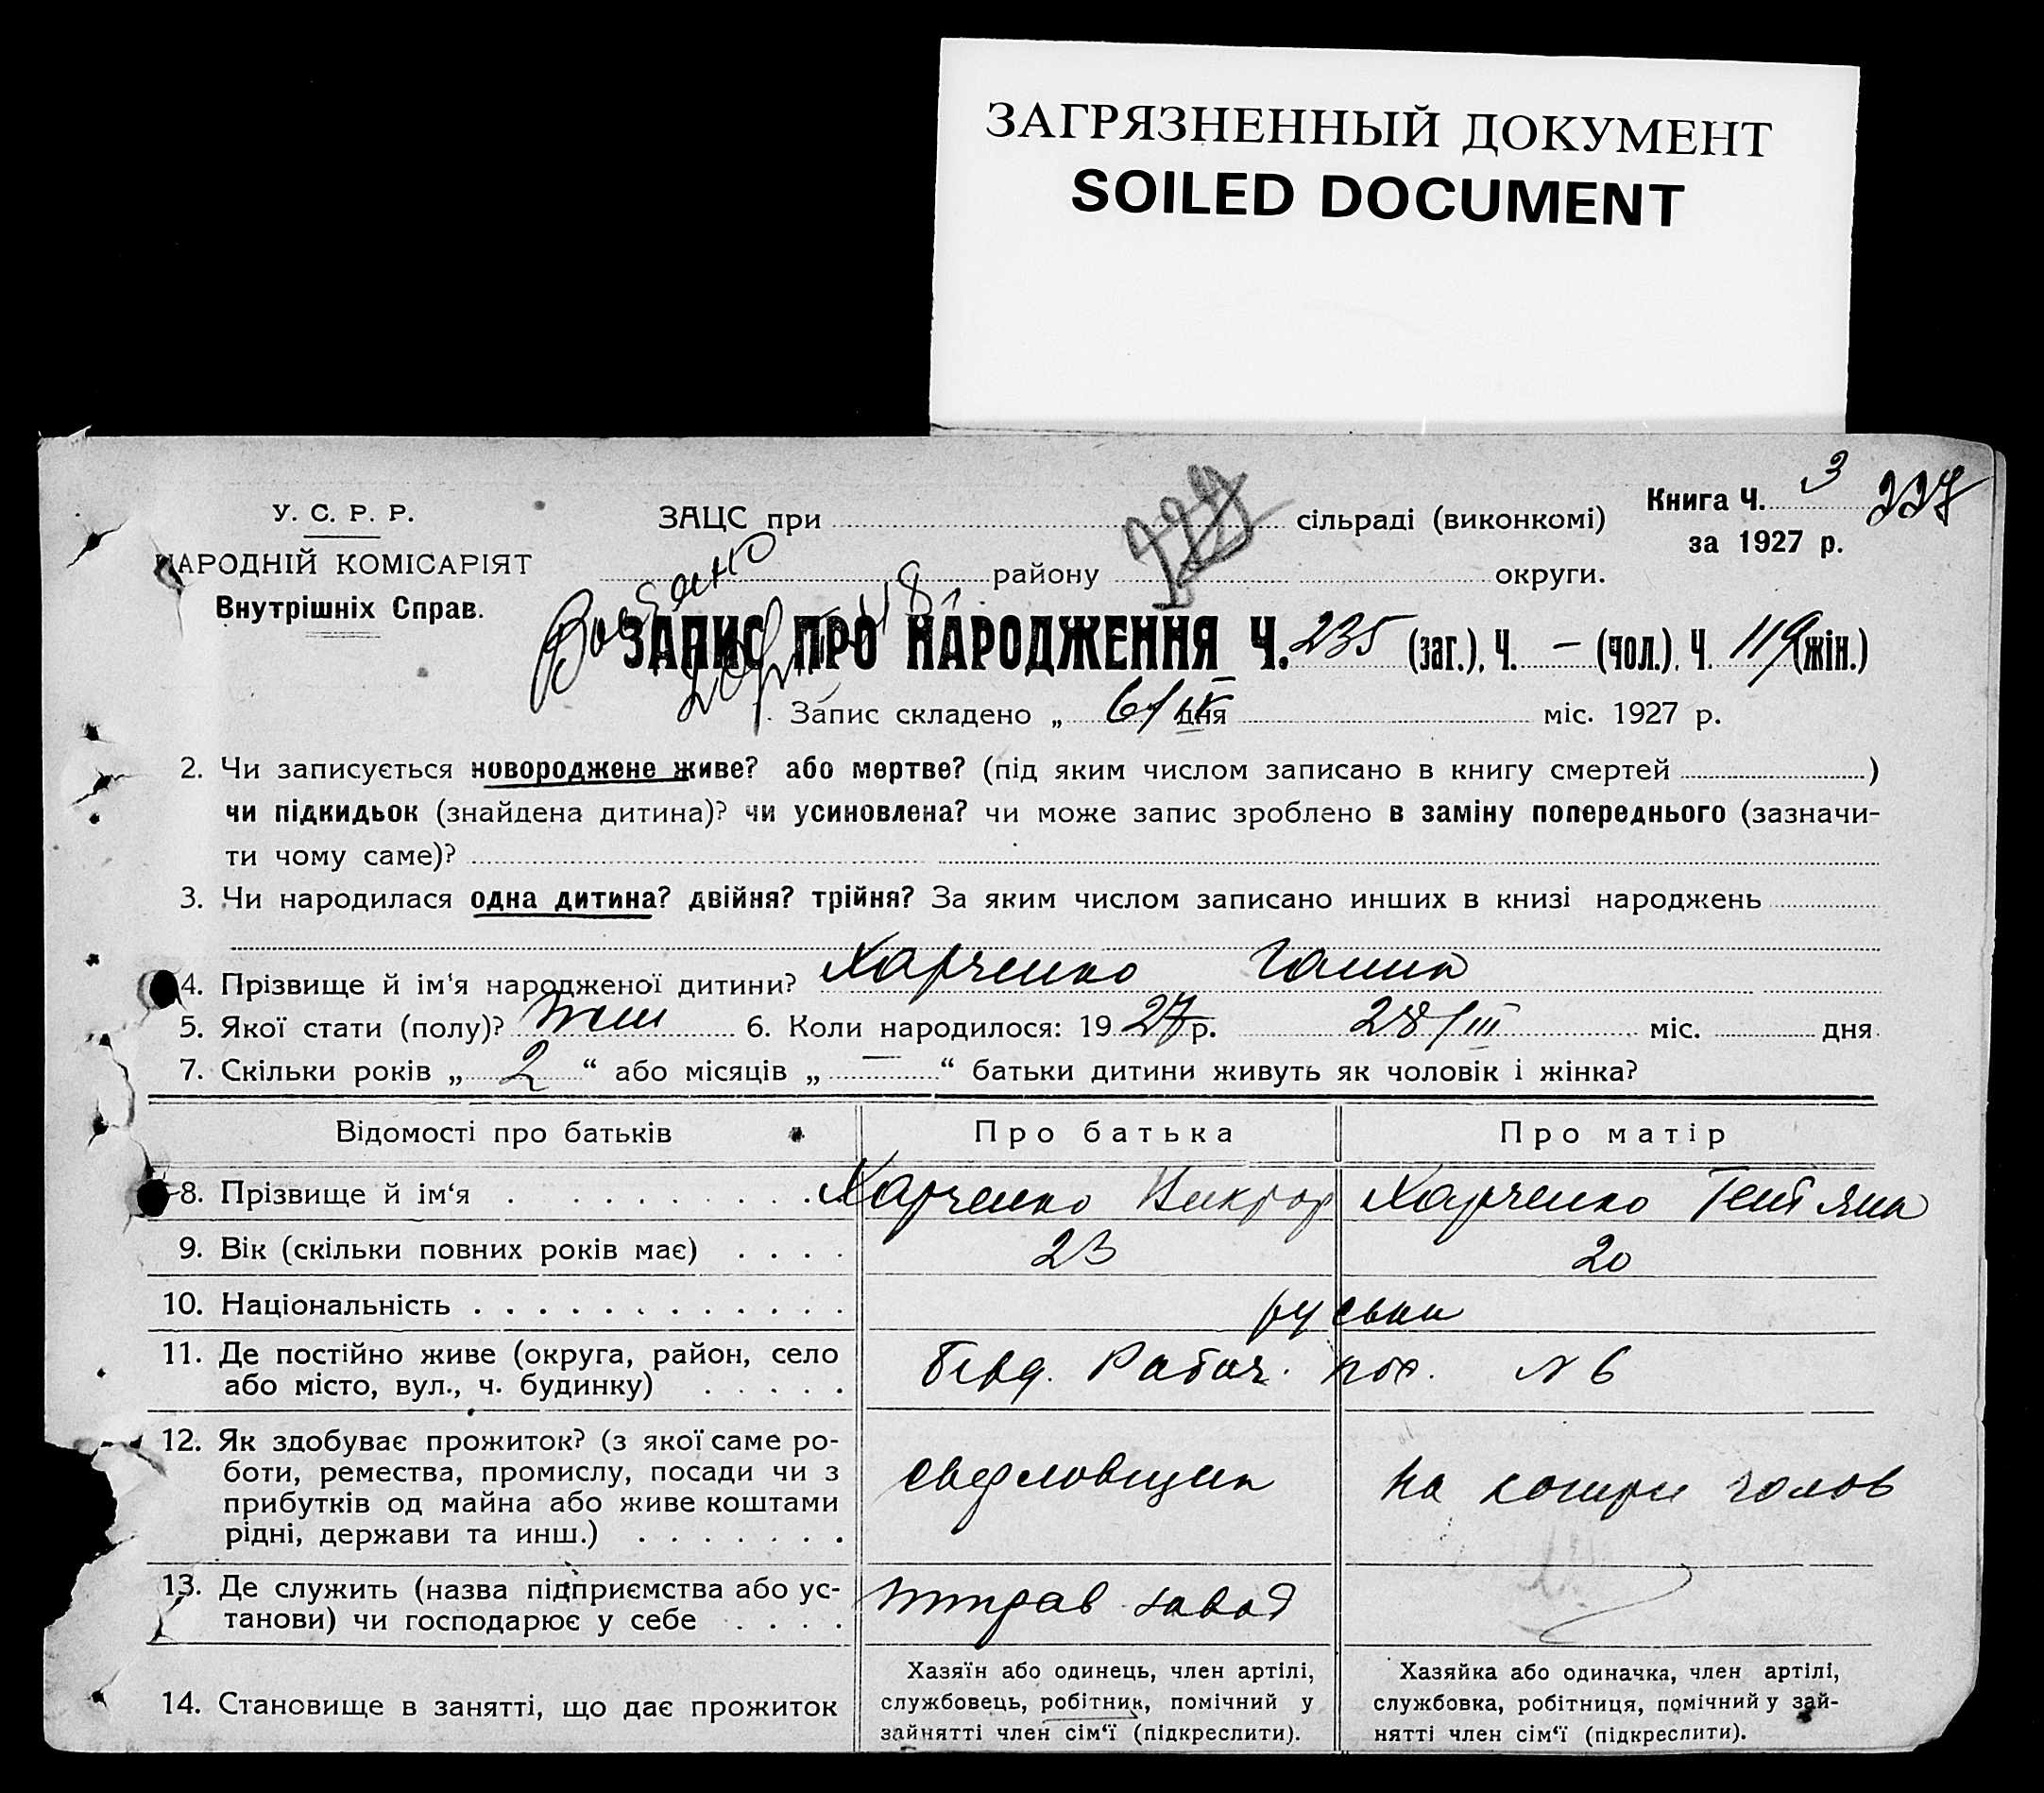 ЗАГРЯЗНЕННЫЙ ДОКУМЕНТ
SOILED DOCUMENT
У. С. Р. Р.
НАРОДНІЙ КОМІСАРІЯТ
Внутрішніх Справ.
ЗАЦС при сільраді (виконкомі)
району округи.
Книга Ч. 3 227
за 1927 р.
ЗАПИС ПРО НАРОДЖЕННЯ Ч. 235 (заг.), Ч. — (чол.), Ч. 119 (жін.)
Запис складено „ 6/IV дня міс. 1927 р.
2. Чи записується новороджене живе? або мертве? (під яким числом записано в книгу смертей )
чи підкидьок (знайдена дитина)? чи усиновлена? чи може запис зроблено в заміну попереднього (зазначи-
ти чому саме)?
3. Чи народилася одна дитина? двійня? трійня? За яким числом записано инших в книзі народжень
4. Прізвище й ім‘я народженої дитини? Харченко Галина
5. Якої стати (полу)? жін 6. Коли народилося: 19 27 р. 28/III міс. дня
7. Скільки років „ 2 “ або місяців „ — “ батьки дитини живуть як чоловік і жінка?
Відомості про батьків Про батька Про матір
8. Прізвище й ім‘я Харченко Виктор Харченко Тетяна
9. Вік (скільки повних років має) 23 20
10. Національність руськи
11. Де постійно живе (округа, район, село
або місто, вул., ч. будинку)
Рабоч. пос. № 6
12. Як здобуває прожиток? (з якої саме ро-
боти, ремества, промислу, посади чи з
прибутків од майна або живе коштами
рідні, держави та инш.)
сведловщик
на кошти чолов
13. Де служить (назва підприємства або ус-
танови) чи господарює у себе
завод
14. Становище в занятті, що дає прожиток
Хазяїн або одинець, член артілі,
службовець, робітник, помічний у
зайнятті член сім‘ї (підкреслити).
Хазяйка або одиначка, член артілі,
службовка, робітниця, помічний у зай-
нятті член сім‘ї (підкреслити).